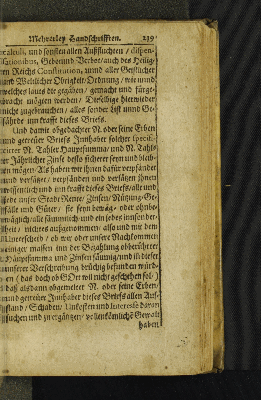 Mehrerley Handschrifften. 219
calculi, und sonsten allen Außfluchten / dispen-
sationibus, Gebot und Verbot / auch des Heilig-
en Reichs Constitution, unnd aller Geistlicher
und Weltlicher Obrigkeit Ordnung / wie unnd
welches lauts die gegeben / gemacht und fürge-
bracht mögen werden / Dieselbige hierwieder
nicht zugebrauchen / alles sonder List unnd Ge-
fährde inn krafft dieses Briefs.
Und damit obgedachter N. oder seine Erben
und getreüer Briefs Innhaber solcher
N. Thaler Haupt Summa / und N. Thalr
Jährlicher Zinse desto sicherer seyn und bleib-
en mögen / Als haben wir ihnen dafür verpfändet
und versetzt / verpfänden und versetzen ihnen
wissentlich und inn krafft dieses Briefs / alle und
jede unser Stadt Rente / Zinsen / Nützung / Ge-
fälle und Güter / sie seyn beweg- oder unbe-
weglich / alle sämmtlich und ein jedes innsonder-
heit / nichts außgenommen / also und mit dem
Unterscheid / ob wir oder unsere Nachkommen
einiger massen inn der Bezahlung obberührter
Häuptsumma und Zinsen säumig / und ist dieser
unserer Verschreibung brüchig befunden würd-
en (das doch ob GOtt wil nicht geschehen sol)
daß als dann obgemelter N. oder seine Erben /
und getreüer Innhaber dieses Briefs allen Auf-
stand / Schaden / Unkosten und Interesse daran
suchen und zu ergäntzen / vollenkömliche Gewalt
haben